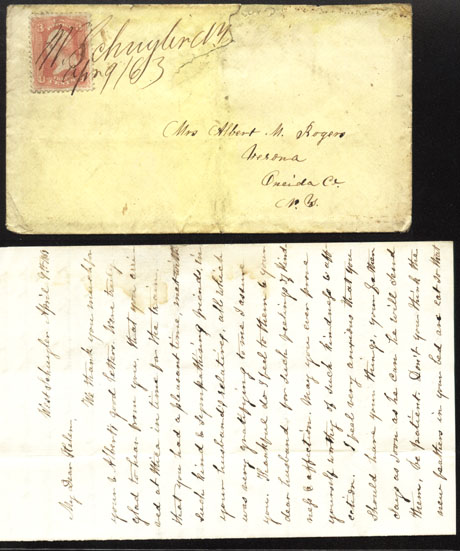 W. Schuyler N.Y.
Apr 9/63
Mrs Albert M. Rogers
Verona
Oneida Co.
N.Y.
West Schuyler April 9th
My Dear Helen,
We thank you much for
your & Albert's good letters. Was truly
glad to hear from you, that you arri-
ved at Utica in time for the train,
that you had a pleasant time & met with
such kind & sympathising friends in
your husband's relatives, all which
was very gratifying to me I assure
you. Thankful do I feel to them & your
dear husband for such feelings of kind
ness & affection. May you ever prove
yourself worthy of such kindness & aff-
ection. I feel very anxious that you
should have your things, your Father
says as soon as he can he will send
them, be patient. Don't you think the
new feathers in your bed are cat so that